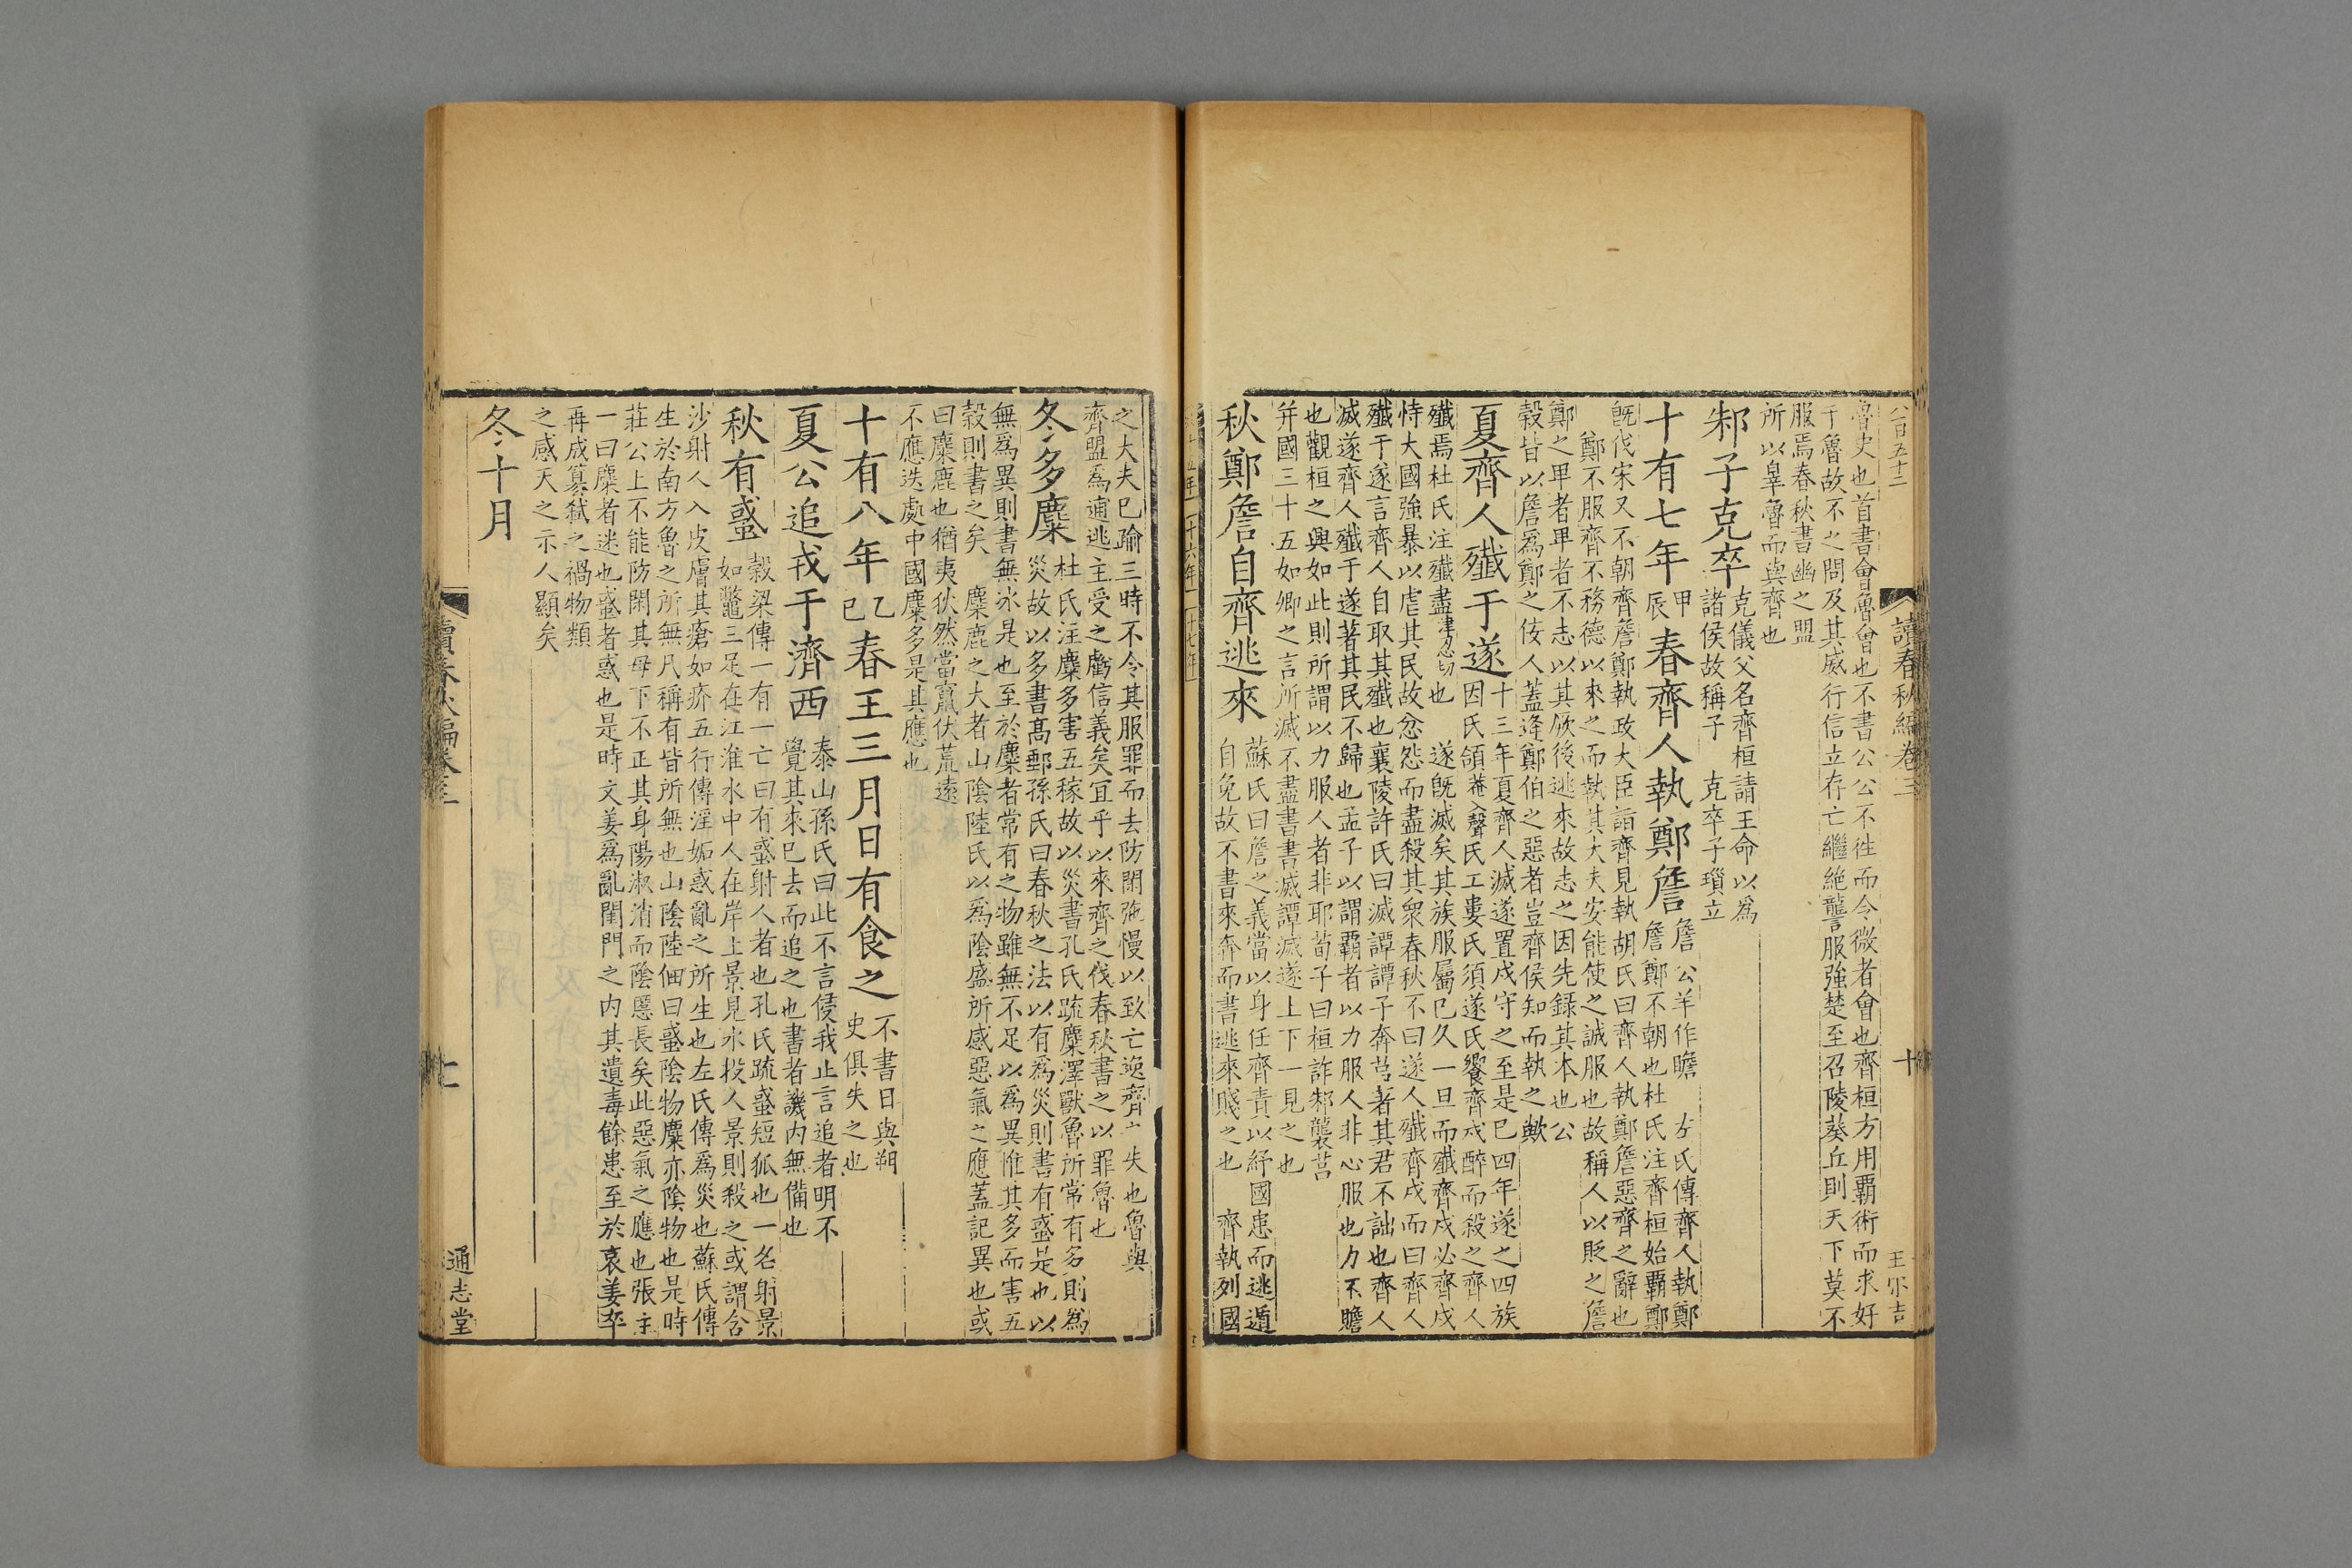 讀春秋編卷三
十
魯史也首書會魯會也不書公公不徃而令微者會也齊桓方用覇術而求好
于魯故不之問及其威行信立存亡繼絶讋服強楚至召陵葵丘則天下莫不
服焉春秋書幽之盟
所以辠魯而與齊也
邾子克卒
克儀父名齊桓請王命以爲
諸侯故稱子 克卒子瑣立
十有七年
甲
辰
春齊人執鄭詹
詹公羊作瞻 左氏傳齊人執鄭
詹鄭不朝也杜氏注齊桓始覇鄭
旣伐宋又不朝齊詹鄭執政大臣詣齊見執胡氏曰齊人執鄭詹惡齊之辭也
鄭不服齊不務德以來之而執其大夫安能使之誠服也故稱人以貶之詹
鄭之卑者卑者不志以其厥後逃來故志之因先録其本也公
榖皆以詹爲鄭之佞人蓋逄鄭伯之惡者豈齊侯知而執之歟
夏齊人殲于遂
十三年夏齊人滅遂置戍守之至是巳四年遂之四族
因氏頜菴入聲氏工婁氏須遂氏饗齊戍醉而殺之齊人
殲焉杜氏注殲盡津忍切也 遂旣滅矣其族服屬巳久一旦而殲齊戍必齊戍
恃大國強暴以虐其民故忿怨而盡殺其衆春秋不曰遂人殲齊戍而曰齊人
殲于遂言齊人自取其殲也襄陵許氏曰滅譚譚子奔莒著其君不詘也齊人
滅遂齊人殲于遂著其民不歸也孟子以謂覇者以力服人非心服也力不贍
也觀桓之興如此則所謂以力服人者非耶荀子曰桓詐邾襲莒
并國三十五如卿之言所滅不盡書書滅譚滅遂上下一見之也
秋鄭詹自齊逃來
蘇氏曰詹之義當以身任齊責以紓國患而逃遁
自免故不書來奔而書逃來賤之也 齊執列國
之大夫巳踰三時不令其服罪而去防閑弛慢以致亡逸齊之失也魯與
齊盟爲逋逃主受之虧信義矣宜乎以來齊之伐春秋書之以罪魯也
冬多麋
杜氏注麋多害五稼故以災書孔氏疏麋澤獸魯所常有多則爲
災故以多書髙郵孫氏曰春秋之法以有爲災則書有蜮是也以
無爲異則書無冰是也至於麋者常有之物雖無不足以爲異惟其多而害五
榖則書之矣 麋鹿之大者山陰陸氏以爲陰盛所感惡氣之應蓋記異也或
曰麋鹿也猶夷狄然當竄伏荒遠
不應迭處中國麋多是其應也
十有八年
乙
巳
春王三月日有食之
不書日與朔
史俱失之也
夏公追戎于濟西
泰山孫氏曰此不言侵我止言追者明不
覺其來巳去而追之也書者譏内無備也
秋有蜮
榖梁傳一有一亡曰有蜮射人者也孔氏疏蜮短狐也一名射景
如鼈三足在江淮水中人在岸上景見水投人景則殺之或謂含
沙射人入皮膚其瘡如疥五行傳淫妬惑亂之所生也左氏傳爲災也蘇氏傳
生於南方魯之所無凡稱有皆所無也山陰陸佃曰蜮陰物麋亦陰物也是時
莊公上不能防閑其母下不正其身陽淑消而陰慝長矣此惡氣之應也張主
一曰麋者迷也蜮者惑也是時文姜爲亂閨門之内其遺毒餘患至於哀姜卒
再成簒弑之禍物類
之感天之示人顯矣
冬十月
讀春秋編卷三
通志堂